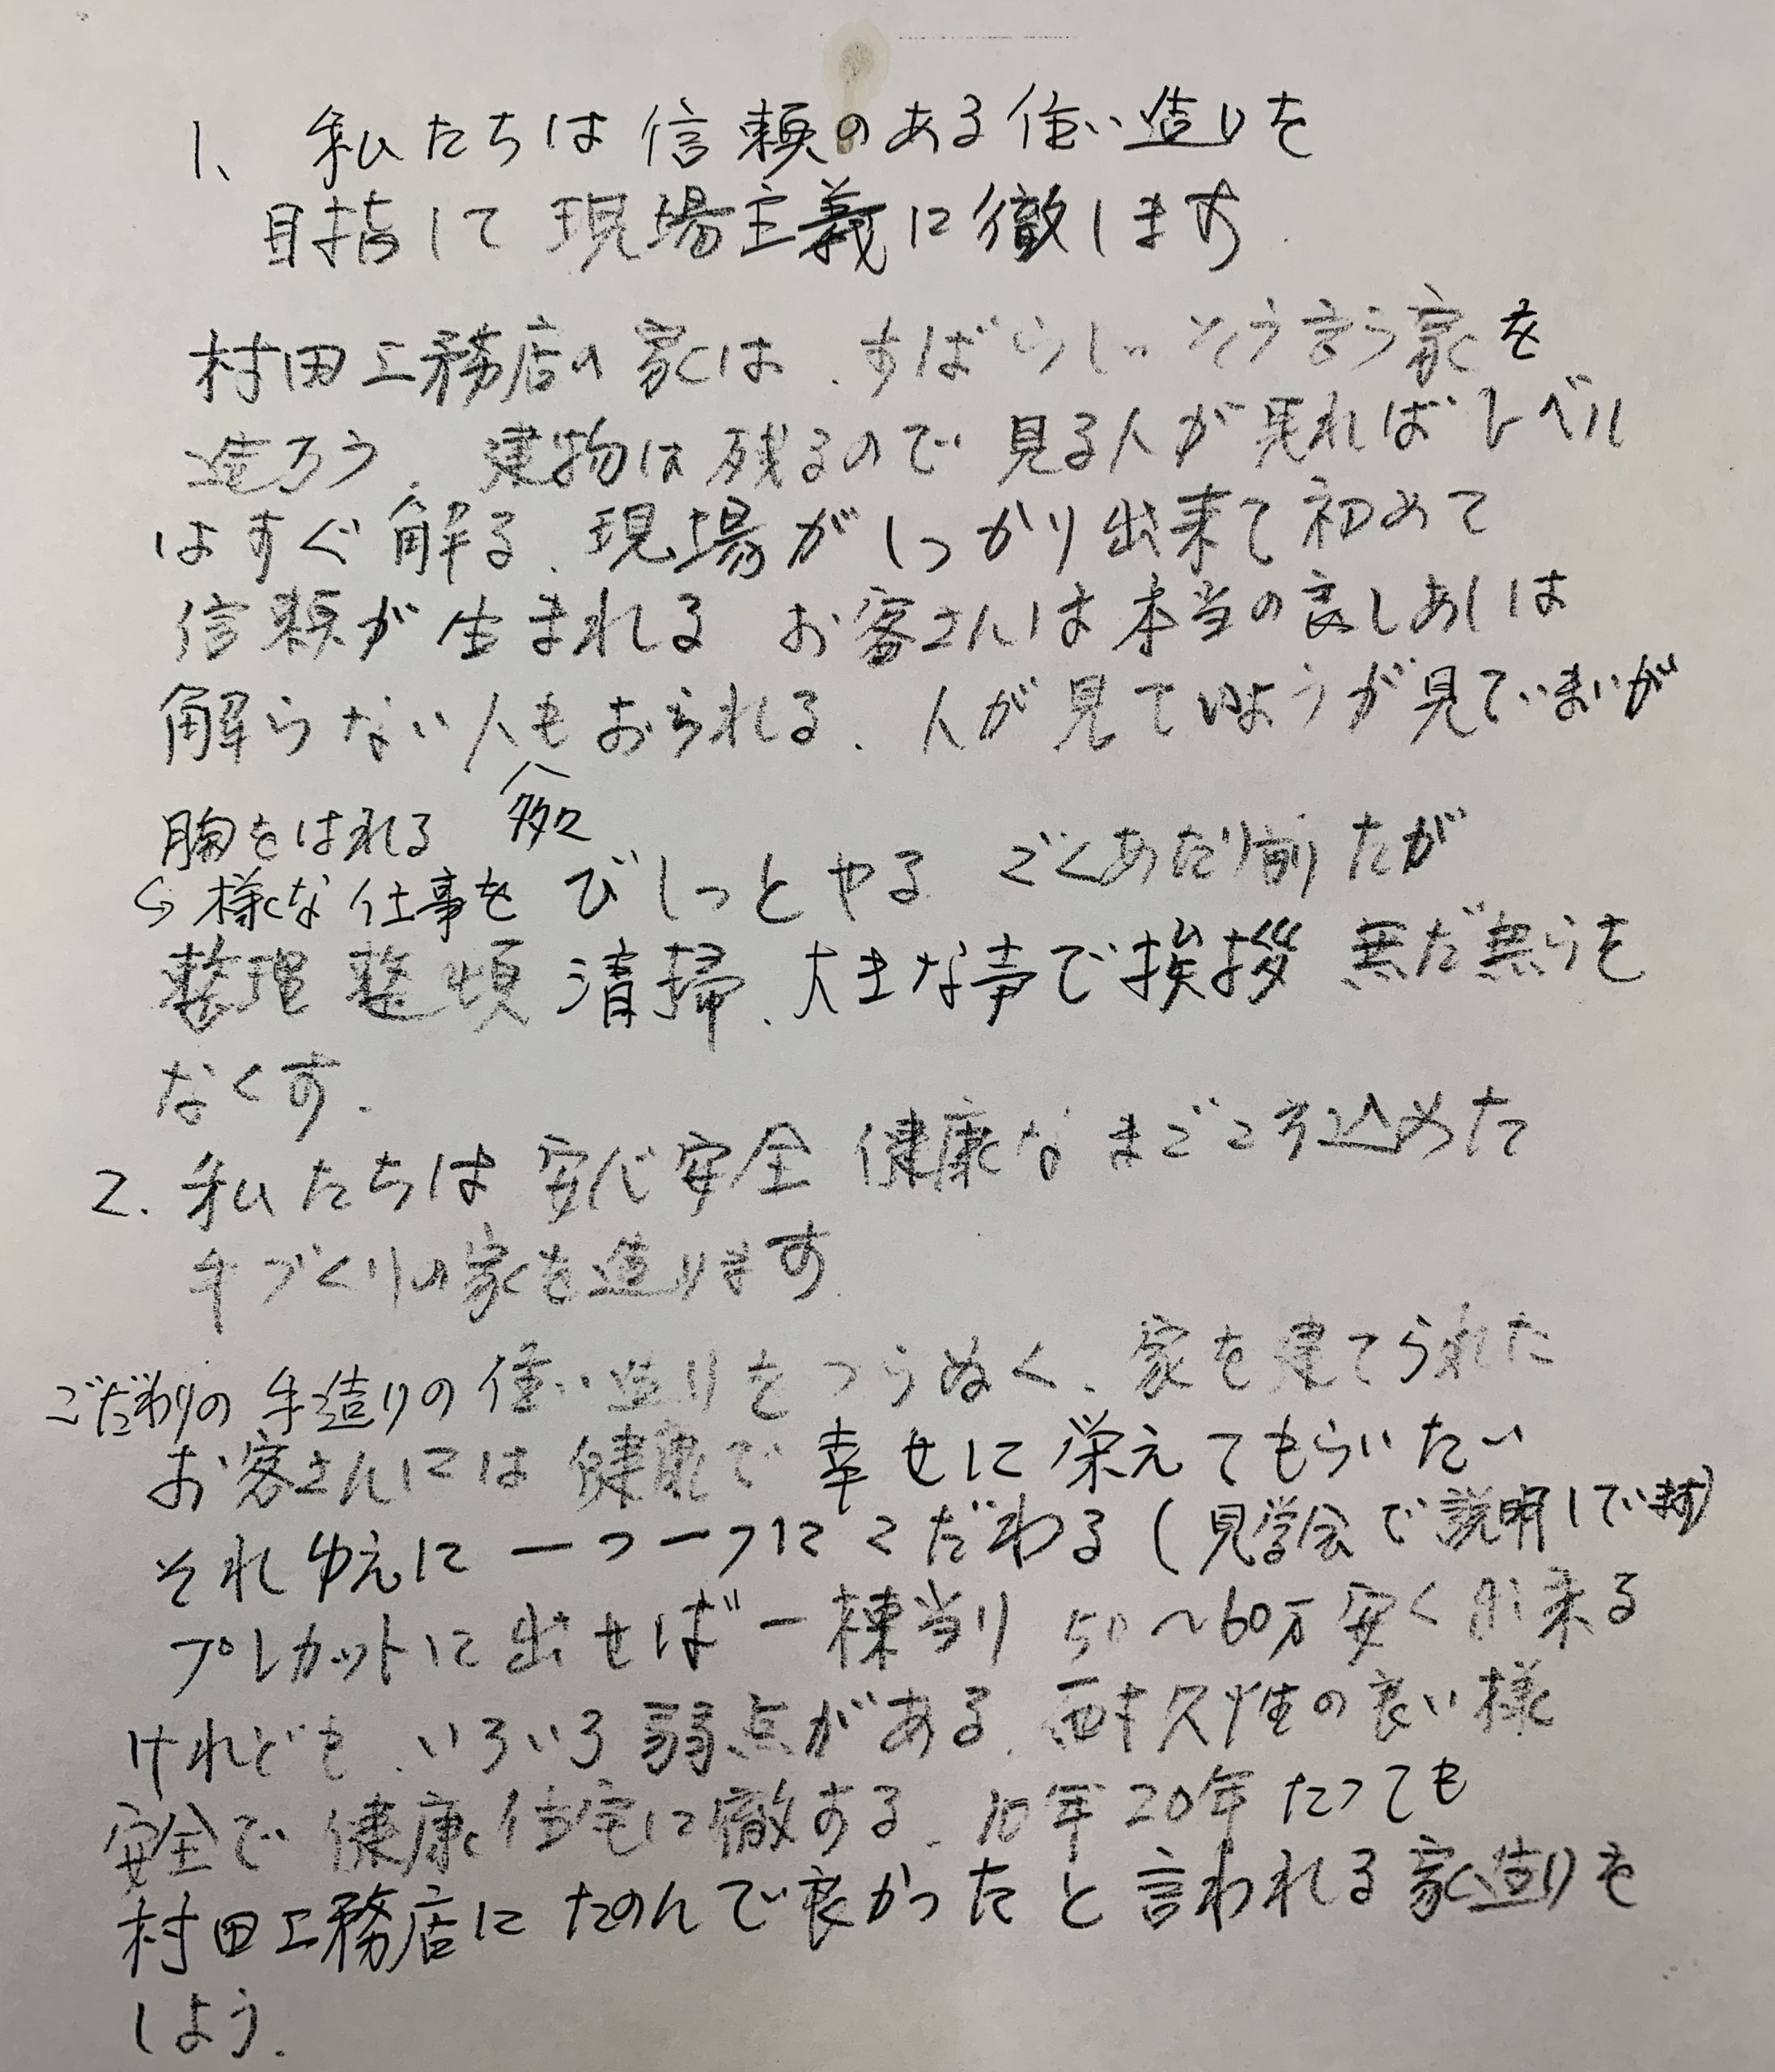 1、私たちは信頼のある住い造りを
目指して現場主義に徹します.
村田工務店の家は、すばらしいそう言う家を
造ろう. 建物は残るので見る人が見ればレベル
はすぐ解る、現場がしっかり出来て初めて
信頼が生まれる お客さんは本当の良しあしは
解らない人もおられる、人が見ていようが見ていまいが
多々
胸をはれる
様な仕事を びしっとやる ごくあたり前だが
整理整頓 清掃、大きな声で挨拶 無だ無らを
なくす.
2. 私たちは安心安全 健康な まごころ込めた
手づくりの家を造ります.
こだわりの手造りの住い造りをつらぬく、家を建てられた
お客さんには健康で幸せに栄えてもらいたい
それゆえに一つ一つにこだわる(見学会で説明してます)
プレカットに出せば一棟当り 50~60万安く出来る
けれども、いろいろ弱点がある、耐久性の良い様
安全で健康住宅に徹する、10年20年たっても
村田工務店にたのんで良かったと言われる家造りを
しよう.